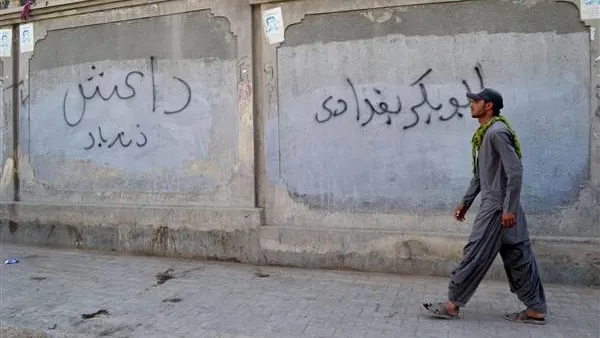 ابوبکر بغدادی
داعش
زنده باد